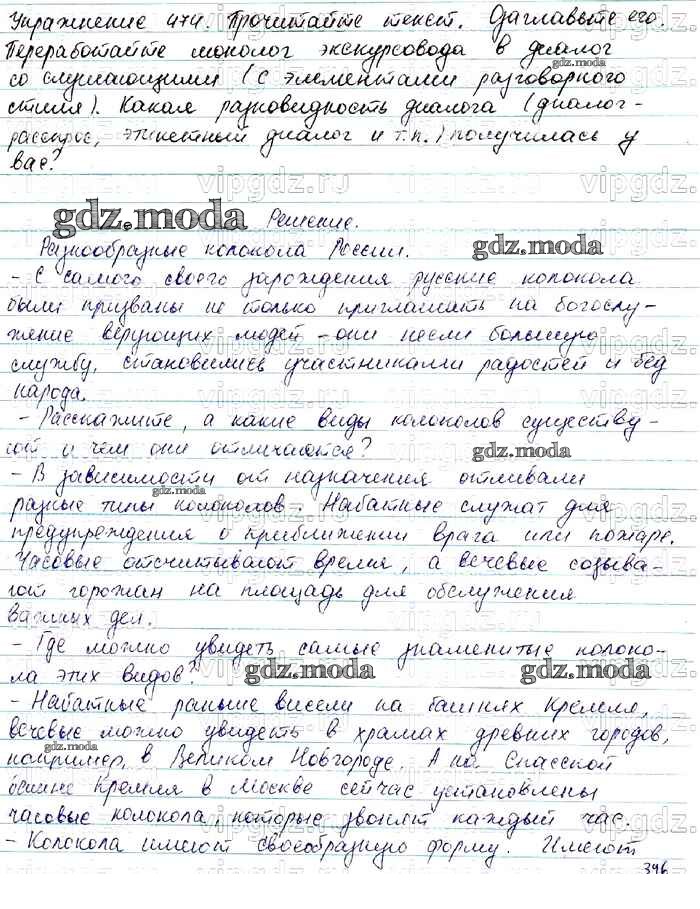 Упражнение 474. Прочитайте текст. Озаглавьте его.
Переработайте монолог экскурсовода в диалог
со слушающими (с элементами разговорного
стиля). Какая разновидность диалога (диалог-
расспрос, этикетный диалог и т.п.) получилась у
вас?
gdz.moda Решение.
Разнообразные колокола России. gdz.moda
- С самого своего зарождения русские колокола
были призваны не только приглашать на богослу-
жение верующих людей - они несли большую
службу, становились участниками радостей и бед
народа.
- Расскажите, а какие виды колоколов существу-
ют и чем они отличаются? gdz.moda
- В зависимости от назначения отливали
gdz.moda
разные типы колоколов. Набатные служат для
предупреждения о приближении врага или пожаре.
Часовые отсчитывают время, а вечевые созыва-
ют горожан на площадь для обслужения
важных дел.
- Где можно увидеть самые знаменитые колоко-
ла этих видов? gdz.moda gdz.moda
- Набатные раньше висели на башнях Кремля,
вечевые можно увидеть в храмах древних городов,
gdz.moda
например, в Великом Новгороде. А на Спасской
башне Кремля в Москве сейчас установлены
часовые колокола, которые звонят каждый час.
gdz.moda
- Колокола имеют своеобразную форму. Имеют
396
vipgdz.ru